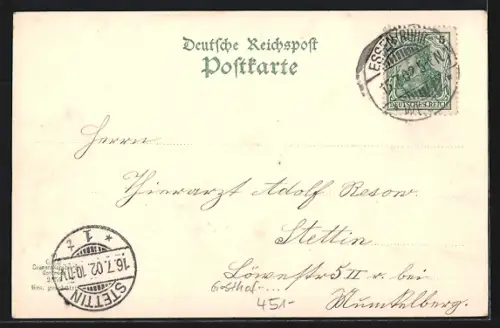 Deutsche Reichspost
Postkarte
ESSEN (RUHR)
5
DEUTSCHES REICH
Herrn
Tierarzt Adolf Resow.
Stettin
Löwestr 5 II r. bei
451-
STETTIN
16.7.02.10-11
1